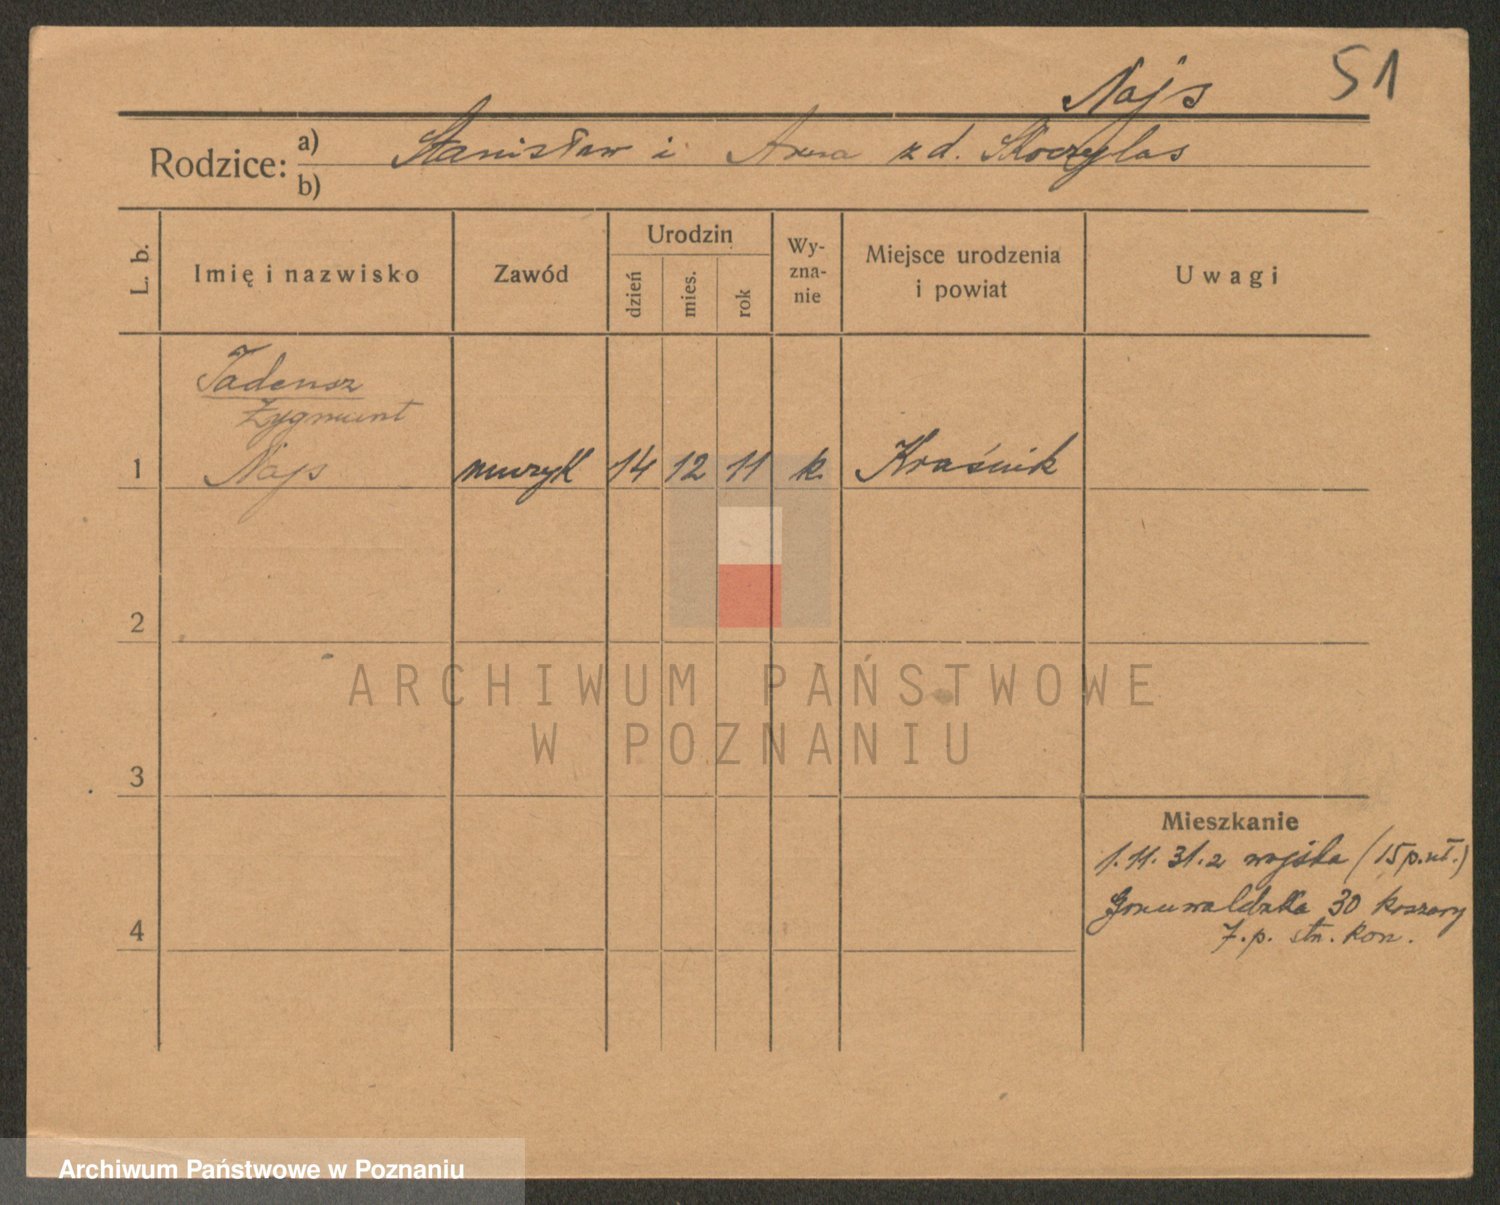 Najs
51
Rodzice:
a) Stanisław i Anna z d. Skoczylas
b)
L. b.
Imię i nazwisko
Zawód
Urodzin
dzień
mies.
rok
Wy-
zna-
nie
Miejsce urodzenia
i powiat
Uwagi
Tadeusz
Zygmunt
1 Najs muzyk 14 12 11 k. Kraśnik
2
ARCHIWUM PAŃSTWOWE
W POZNANIU
3
Mieszkanie
1.11.31. z wojska (15 p. uł.)
Grunwaldzka 30 koszary
7. p. stn. kon.
4
Archiwum Państwowe w Poznaniu